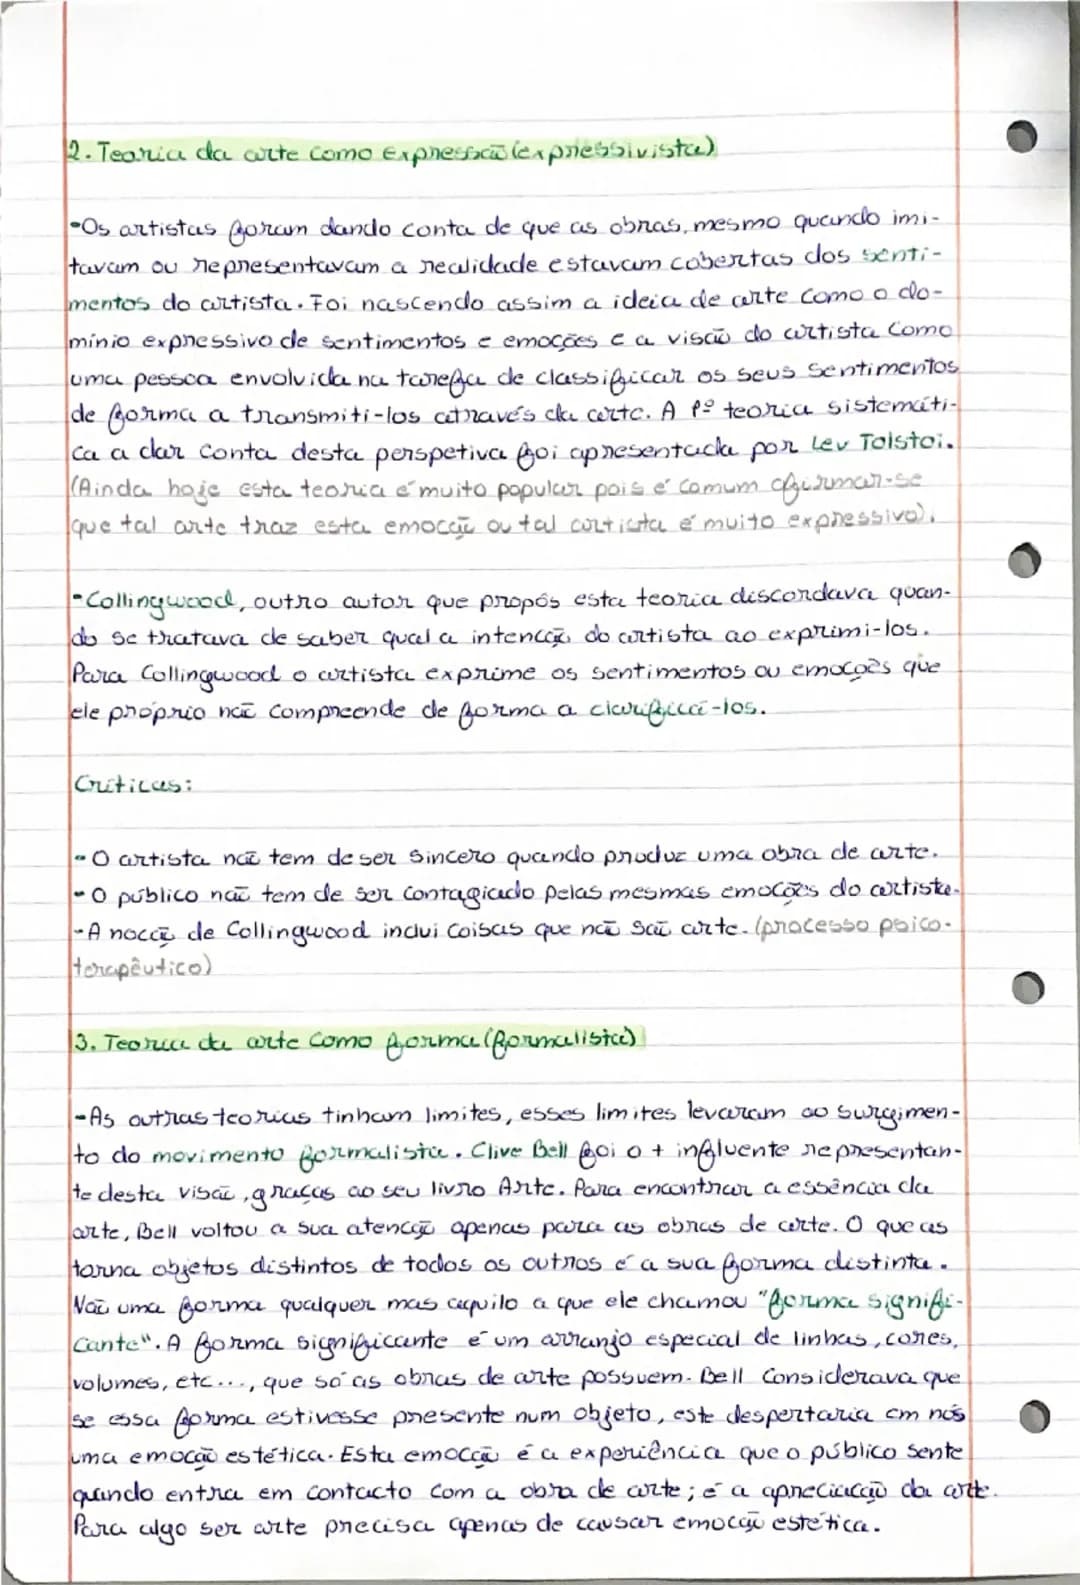 2. Teoria da arte como expressão (expressivista)
-Os artistas foram dando conta de que as obras, mesmo quando imi-
tavam ou representavam a realidade estavam cobertas dos senti-
mentos do artista. Foi nascendo assim a ideia de arte como o do-
mínio expressivo de sentimentos e emoções e a visão do artista como
uma pessoa envolvida na tarefa de classificar os seus sentimentos
de forma a transmiti-los através da arte. A 1º teoria sistemáti-
ca a dar conta desta perspetiva foi apresentada por Lev Tolstoi.
(Ainda hoje esta teoria é muito popular pois é comum afirmar-se
que tal arte traz esta emoção ou tal artista é muito expressivo).
-Collingwood, outro autor que propôs esta teoria discordava quan-
do se tratava de saber qual a intenção do artista ao exprimi-los.
Para Collingwood o artista exprime os sentimentos ou emoções que
ele próprio não compreende de forma a clarificá-los.
Críticas:
-O artista não tem de ser sincero quando produz uma obra de arte.
-O público não tem de ser contagiado pelas mesmas emoções do artista.
-A noção de Collingwood inclui coisas que não são arte. (processo psico-
terapêutico)
3. Teoria da arte como forma (formalista)
-As outras teorias tinham limites, esses limites levaram ao surgimen-
to do movimento formalista. Clive Bell foi o + influente representan-
te desta visão, graças ao seu livro Arte. Para encontrar a essência da
arte, Bell voltou a sua atenção apenas para as obras de arte. O que as
torna objetos distintos de todos os outros é a sua forma distinta.
Não uma forma qualquer mas aquilo a que ele chamou "forma signifi-
cante". A forma significante é um arranjo especial de linhas, cores,
volumes, etc..., que só as obras de arte possuem. Bell considerava que
se essa forma estivesse presente num objeto, este despertaria em nós
uma emoção estética. Esta emoção é a experiência que o público sente
quando entra em contacto com a obra de arte; é a apreciação da arte.
Para algo ser arte precisa apenas de causar emoção estética.